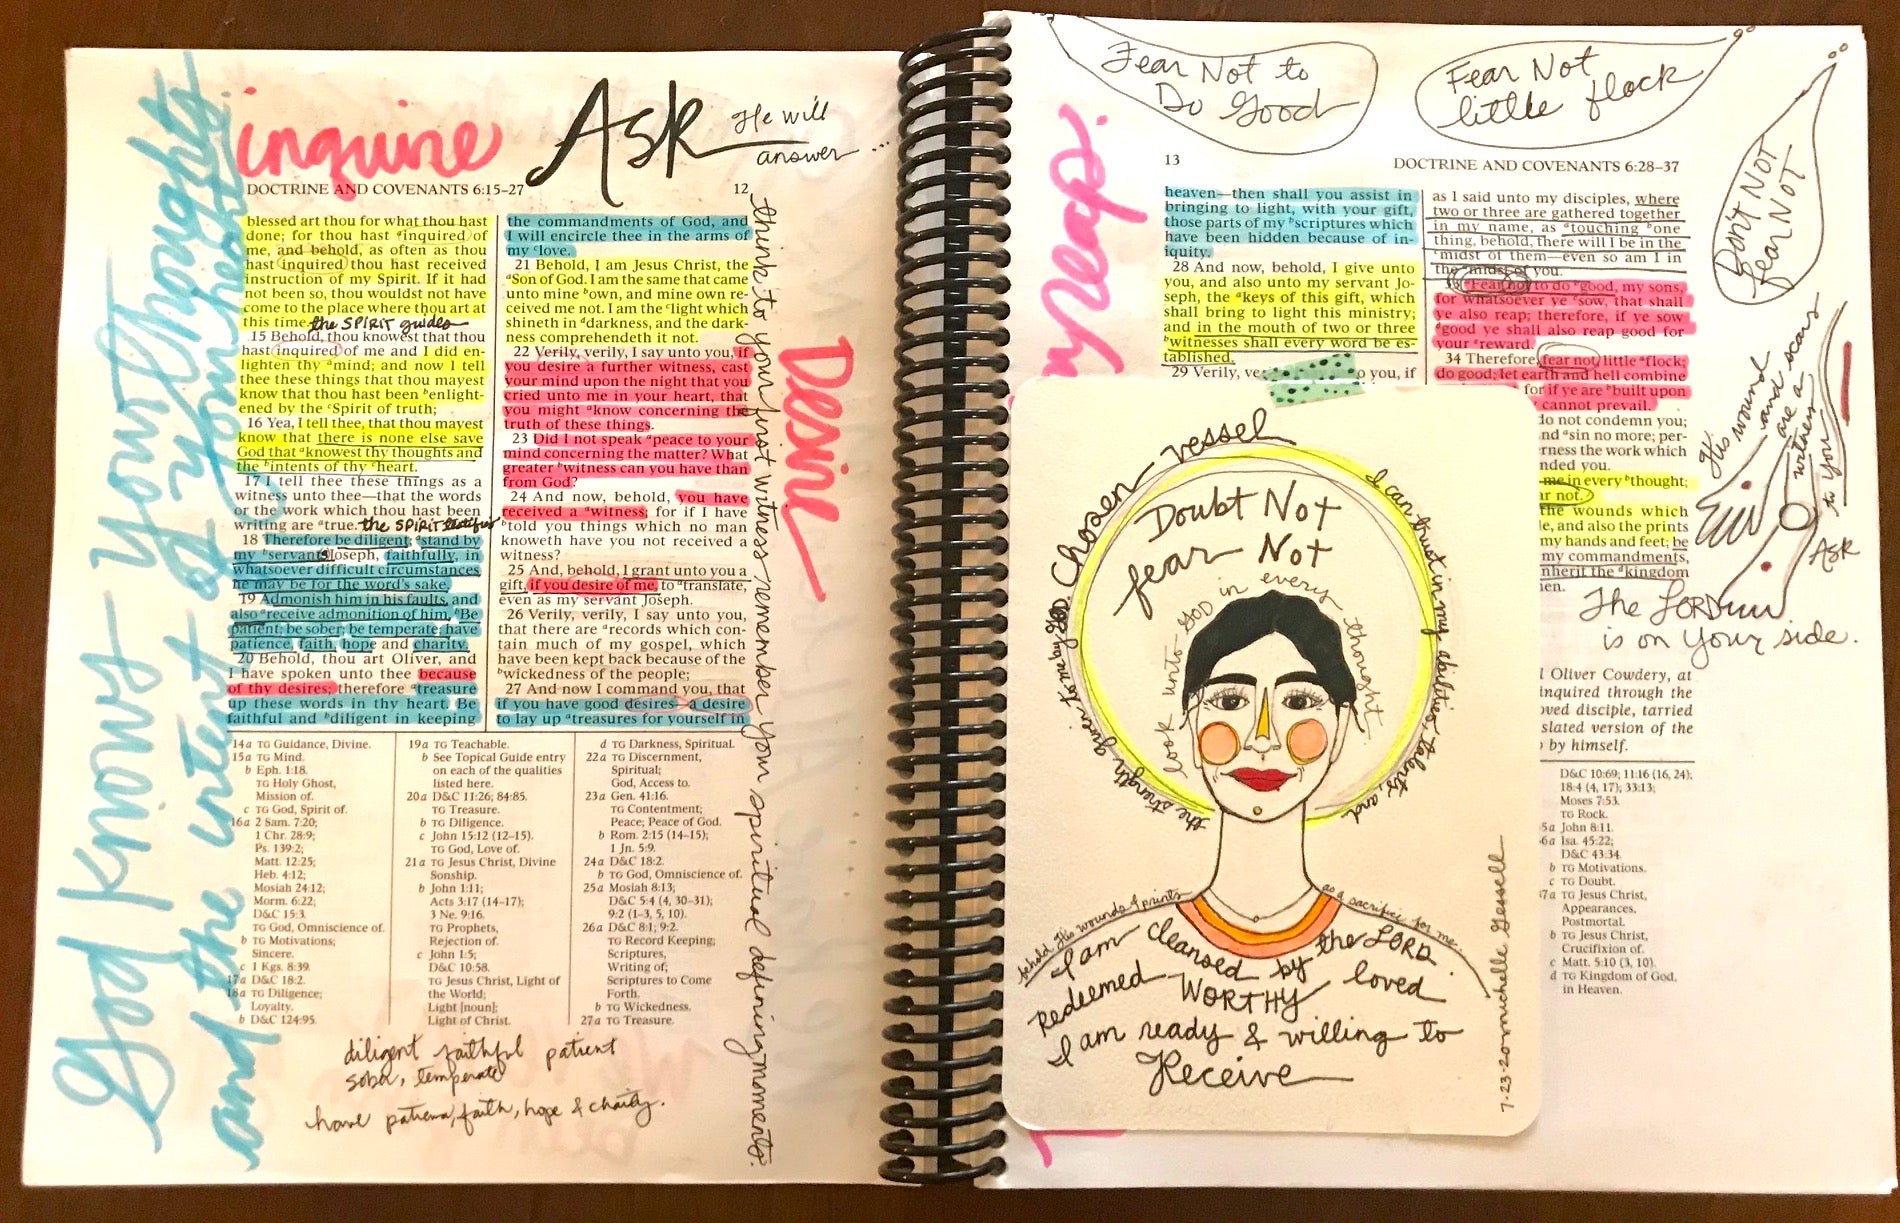 God knows your thoughts
and the intent of your heart.
inquire
Ask
He will
answer...
DOCTRINE AND COVENANTS 6:15–27
12
blessed art thou for what thou hast
done; for thou hast ᵃinquired of
me, and behold, as often as thou
hast inquired thou hast received
instruction of my Spirit. If it had
not been so, thou wouldst not have
come to the place where thou art at
this time. the SPIRIT guides
15 Behold, thou knowest that thou
hast inquired of me and I did en-
lighten thy ᵃmind; and now I tell
thee these things that thou mayest
know that thou hast been ᵇenlight-
ened by the ᶜSpirit of truth;
16 Yea, I tell thee, that thou mayest
know that there is none else save
God that ᵃknowest thy thoughts and
the ᵇintents of thy ᶜheart.
17 I tell thee these things as a
witness unto thee—that the words
or the work which thou hast been
writing are ᵃtrue. the SPIRIT testifies
18 Therefore be diligent; ᵃstand by
my ᵇservant Joseph, faithfully, in
whatsoever difficult circumstances
he may be for the word's sake.
19 Admonish him in his faults, and
also ᵃreceive admonition of him. ᵇBe
patient; be sober; be temperate; have
patience, faith, hope and charity.
20 Behold, thou art Oliver, and
I have spoken unto thee because
of thy desires; therefore ᵃtreasure
up these words in thy heart. Be
faithful and ᵇdiligent in keeping
the commandments of God, and
I will encircle thee in the arms of
my ᶜlove.
21 Behold, I am Jesus Christ, the
ᵃSon of God. I am the same that came
unto mine ᵇown, and mine own re-
ceived me not. I am the ᶜlight which
shineth in ᵈdarkness, and the dark-
ness comprehendeth it not.
22 Verily, verily, I say unto you, if
you desire a further witness, cast
your mind upon the night that you
cried unto me in your heart, that
you might ᵃknow concerning the
truth of these things.
23 Did I not speak ᵃpeace to your
mind concerning the matter? What
greater ᵇwitness can you have than
from God?
24 And now, behold, you have
received a ᵃwitness; for if I have
ᵇtold you things which no man
knoweth have you not received a
witness?
25 And, behold, I grant unto you a
gift, if you desire of me, to ᵃtranslate,
even as my servant Joseph.
26 Verily, verily, I say unto you,
that there are ᵃrecords which con-
tain much of my gospel, which
have been kept back because of the
ᵇwickedness of the people;
27 And now I command you, that
if you have good desires—a desire
to lay up ᵃtreasures for yourself in
think to your first witness remember your spiritual defining moments.
Desire
14a TG Guidance, Divine.
15a TG Mind.
b Eph. 1:18.
TG Holy Ghost,
Mission of.
c TG God, Spirit of.
16a 2 Sam. 7:20;
1 Chr. 28:9;
Ps. 139:2;
Matt. 12:25;
Heb. 4:12;
Mosiah 24:12;
Morm. 6:22;
D&C 15:3.
TG God, Omniscience of.
b TG Motivations;
Sincere.
c 1 Kgs. 8:39.
17a D&C 18:2.
18a TG Diligence;
Loyalty.
b D&C 124:95.
19a TG Teachable.
b See Topical Guide entry
on each of the qualities
listed here.
20a D&C 11:26; 84:85.
TG Treasure.
b TG Diligence.
c John 15:12 (12–15).
TG God, Love of.
21a TG Jesus Christ, Divine
Sonship.
b John 1:11;
Acts 3:17 (14–17);
3 Ne. 9:16.
TG Prophets,
Rejection of.
c John 1:5;
D&C 10:58.
TG Jesus Christ, Light of
the World;
Light [noun];
Light of Christ.
d TG Darkness, Spiritual.
22a TG Discernment,
Spiritual;
God, Access to.
23a Gen. 41:16.
TG Contentment;
Peace; Peace of God.
b Rom. 2:15 (14–15);
1 Jn. 5:9.
24a D&C 18:2.
b TG God, Omniscience of.
25a Mosiah 8:13;
D&C 5:4 (4, 30–31);
9:2 (1–3, 5, 10).
26a D&C 8:1; 9:2.
TG Record Keeping;
Scriptures,
Writing of;
Scriptures to Come
Forth.
b TG Wickedness.
27a TG Treasure.
diligent faithful patient
sober, temperate
have patience, faith, hope & charity.
Fear Not to
Do Good
Fear Not
little flock
Doubt Not
fear NOT
reap.
13
DOCTRINE AND COVENANTS 6:28–37
heaven—then shall you assist in
bringing to light, with your gift,
those parts of my ᵃscriptures which
have been hidden because of in-
iquity.
28 And now, behold, I give unto
you, and also unto my servant Jo-
seph, the ᵃkeys of this gift, which
shall bring to light this ministry;
and in the mouth of two or three
ᵇwitnesses shall every word be es-
tablished.
29 Verily, ve
o you, if
as I said unto my disciples, where
two or three are gathered together
in my name, as ᵃtouching ᵇone
thing, behold, there will I be in the
ᶜmidst of them—even so am I in
the ᵈmidst of you.
Fear not to do ᵃgood, my sons,
for whatsoever ye ᶜsow, that shall
ye also reap; therefore, if ye sow
ᵈgood ye shall also reap good for
your ᵉreward.
34 Therefore, fear not, little ᵃflock;
do good; let earth and hell combine
for if ye are ᵇbuilt upon
cannot prevail.
do not condemn you;
nd ᵃsin no more; per-
erness the work which
nded you.
me in every ᵇthought;
ar not.
the wounds which
le, and also the prints
my hands and feet; be
my commandments,
nherit the ᵈkingdom
en.
His wound
and scars
are a
witness
to you
ASK
The LORD
is on your side.
l Oliver Cowdery, at
inquired through the
oved disciple, tarried
slated version of the
by himself.
D&C 10:69; 11:16 (16, 24);
18:4 (4, 17); 33:13;
Moses 7:53.
TG Rock.
5a John 8:11.
6a Isa. 45:22;
D&C 43:34.
b TG Motivations.
c TG Doubt.
7a TG Jesus Christ,
Appearances,
Postmortal.
b TG Jesus Christ,
Crucifixion of.
c Matt. 5:10 (3, 10).
d TG Kingdom of God,
in Heaven.
Chosen vessel
I can trust in my abilities, talents, and
the strength given to me by GOD.
Doubt Not
fear Not
look unto GOD in every thought
behold His wounds & prints
as a sacrifice for me.
I am cleansed by the LORD.
Redeemed WORTHY loved
I am ready & willing to
Receive
7-23-20 michelle Gessell